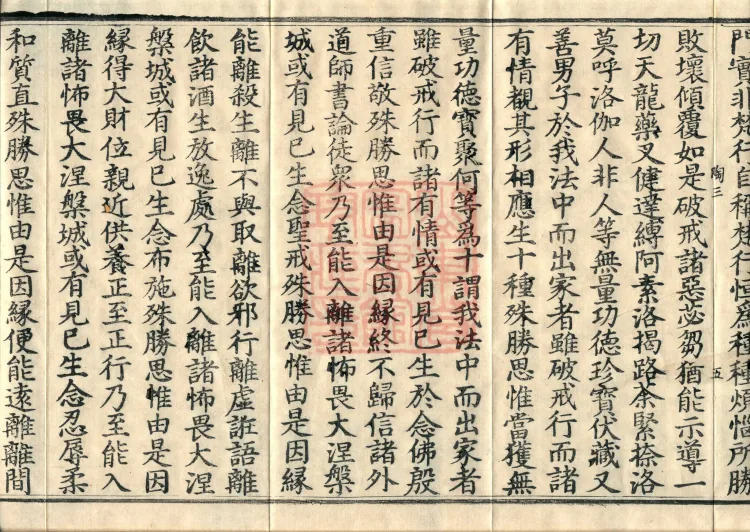 門實非梵行自稱梵行恒為種種煩惱所勝
陶三
五
敗壞傾覆如是破戒諸惡苾芻猶能示導一
切天龍藥叉健達縛阿素洛揭路荼緊捺洛
莫呼洛伽人非人等無量功德珍寶伏藏又
善男子於我法中而出家者雖破戒行而諸
有情覩其形相應生十種殊勝思惟當獲無
量功德寶聚何等為十謂我法中而出家者
雖破戒行而諸有情或有見已生於念佛殷
重信敬殊勝思惟由是因緣終不歸信諸外
道師書論徒衆乃至能入離諸怖畏大涅槃
城或有見已生念聖戒殊勝思惟由是因緣
能離殺生離不與取離欲邪行離虛誑語離
飲諸酒生放逸處乃至能入離諸怖畏大涅
槃城或有見已生念布施殊勝思惟由是因
緣得大財位親近供養正至正行乃至能入
離諸怖畏大涅槃城或有見已生念忍辱柔
和質直殊勝思惟由是因緣便能遠離離間